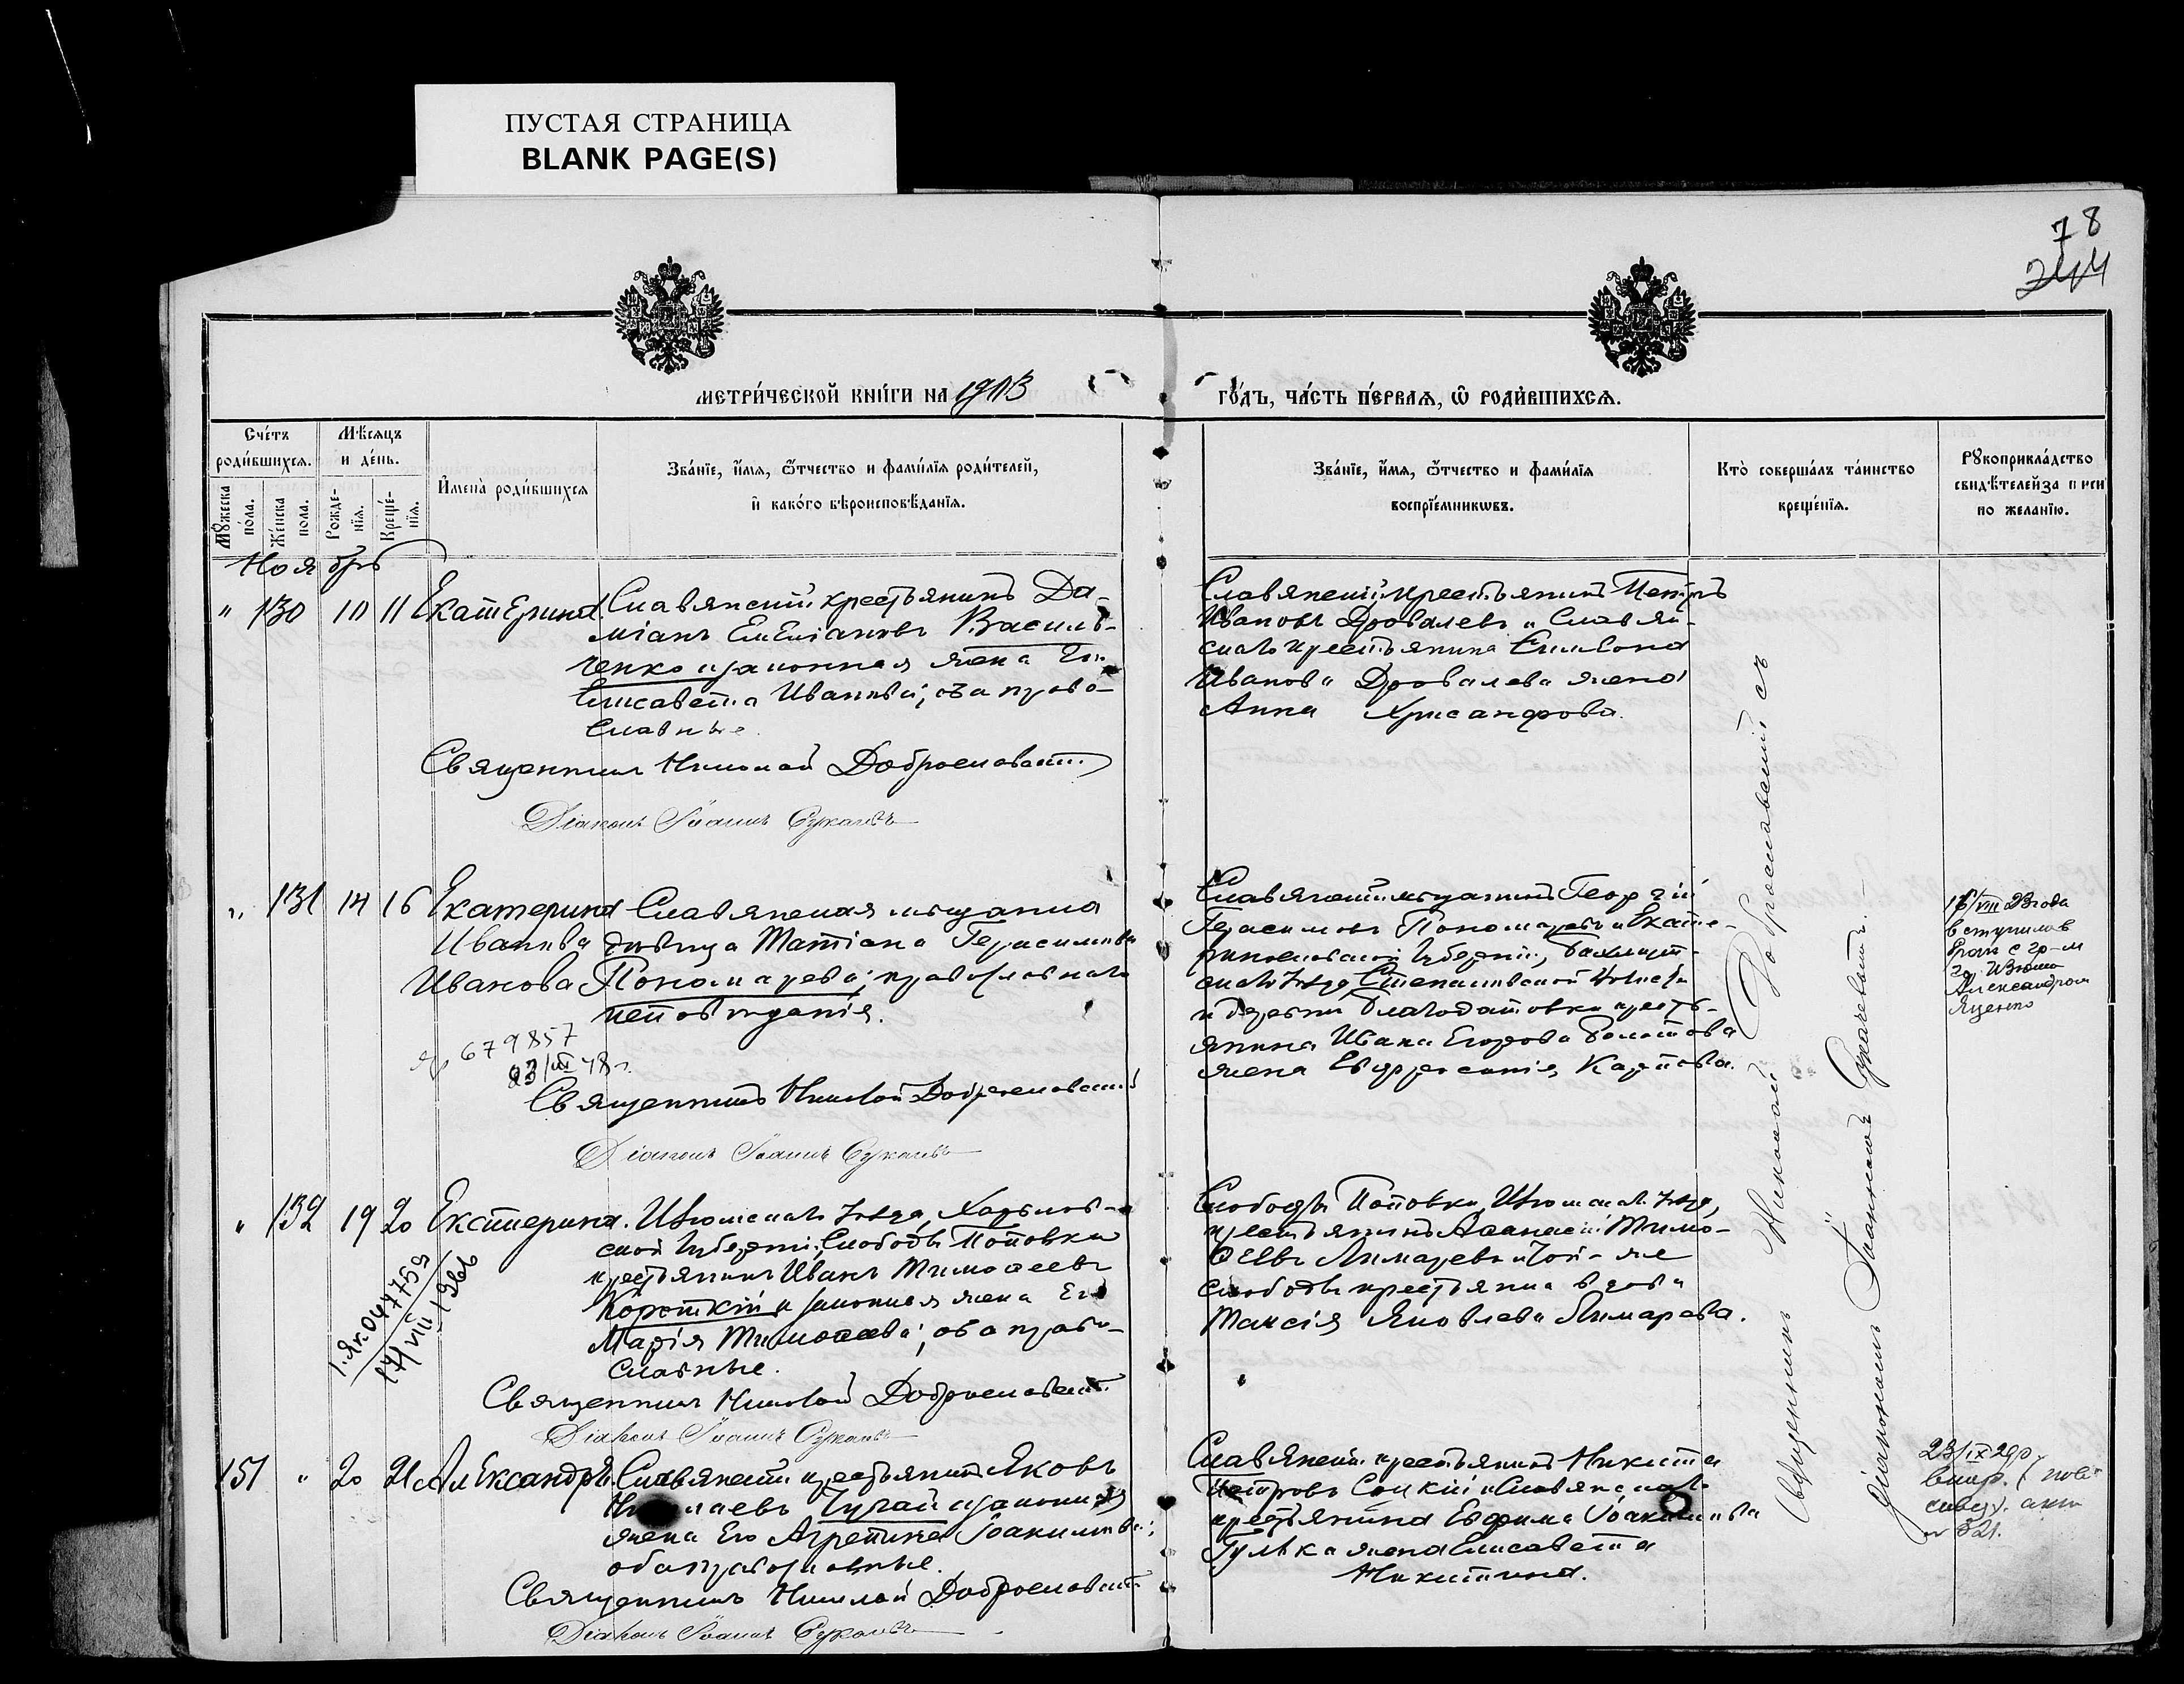 ПУСТАЯ СТРАНИЦА
BLANK PAGE(S)
78
244
МЕТРИ́ЧЕСКОЙ КНИ́ГИ НА 1903
ГО́ДЪ, ЧА́СТЬ ПЕ́РВАѦ, Ѿ РОДИ́ВШИХСѦ.
Сче́тъ роди́вшихсѧ.
Мѣ́сѧцъ и де́нь.
Мꙋ́жеска по́ла.
Же́нска по́ла.
Рожде́нїѧ.
Креще́нїѧ.
И҆мена̀ роди́вшихсѧ
Зва́нїе, и҆́мѧ, ѻ҆́тчество и фами́лїѧ роди́телей,
и҆ како́гѡ вѣроисповѣ́данїѧ.
Зва́нїе, и҆́мѧ, ѻ҆́тчество и фами́лїѧ
воспрїе́мникѡвъ.
Кто̀ соверша́лъ та́инство
креще́нїѧ.
Рꙋкоприкла́дство
свидѣ́телей записи
по жела́нїю.
Ноябрь
" 130 10 11 Екатерина
Славянскій крестьянинъ Да-
міанъ Емеліановъ Василь-
ченко и законная жена его
Елисавета Иванова; оба право-
славные.
Священникъ Николай Доброславскій
Діаконъ Іоаннъ Сукачевъ
Славянскій крестьянинъ Петръ
Ивановъ Дровалевъ и Славян-
скаго крестьянина Симеона
Иванова Дровалева жена
Анна Хрисанфова.
" 131 14 16 Екатерина
Иванова
Иванова
Славянская мѣщанка
дѣвица Татіана Герасимова
Пономарева; православнаго
исповѣданія.
679857
23/XI 48 г.
Священникъ Николай Доброславскій
Діаконъ Іоаннъ Сукачевъ
Славянскій мѣщанинъ Георгій
Герасимовъ Пономаревъ и Екате-
ринославской губерніи, Бахмут-
скаго уѣзда, Степановской волости
и деревни Благодатовки кресть-
янина Ивана Егорова Болотова
жена Евфросинія Карпова.
16/VIII 23 года
вступила в
брак с гр-м
гр. Изюма
Александром
Яценко
" 132 19 20 Екатерина.
Изюмскаго уѣзда, Харьков-
ской губерніи, слободы Поповки
крестьянинъ Иванъ Тимоѳеевъ
Короткій и законная жена его
Марія Тимоѳеева; оба право-
славные.
047759
17/VIII 1966
Священникъ Николай Доброславскій
Діаконъ Іоаннъ Сукачевъ
Слободы Поповки, Изюмскаго уѣзда,
крестьянинъ Аѳанасій Тимо-
ѳеевъ Лимаревъ и той-же
слободы крестьянка вдова
Таисія Яковлева Лимарева.
151 " 20 21 Александръ.
Славянскій крестьянинъ Яковъ
Николаевъ Чугай и законная
жена его Агрепина Іоакимова;
оба православные.
Священникъ Николай Доброславскій
Діаконъ Іоаннъ Сукачевъ
Славянскій крестьянинъ Никита
Петровъ Соцкій и Славянскаго
крестьянина Евфима Іоакимова
Гулька жена Елисавета
Никитина.
23/IX 29 р.
Священникъ Николай Доброславскій съ
діакономъ Іоанномъ Сукачевымъ.